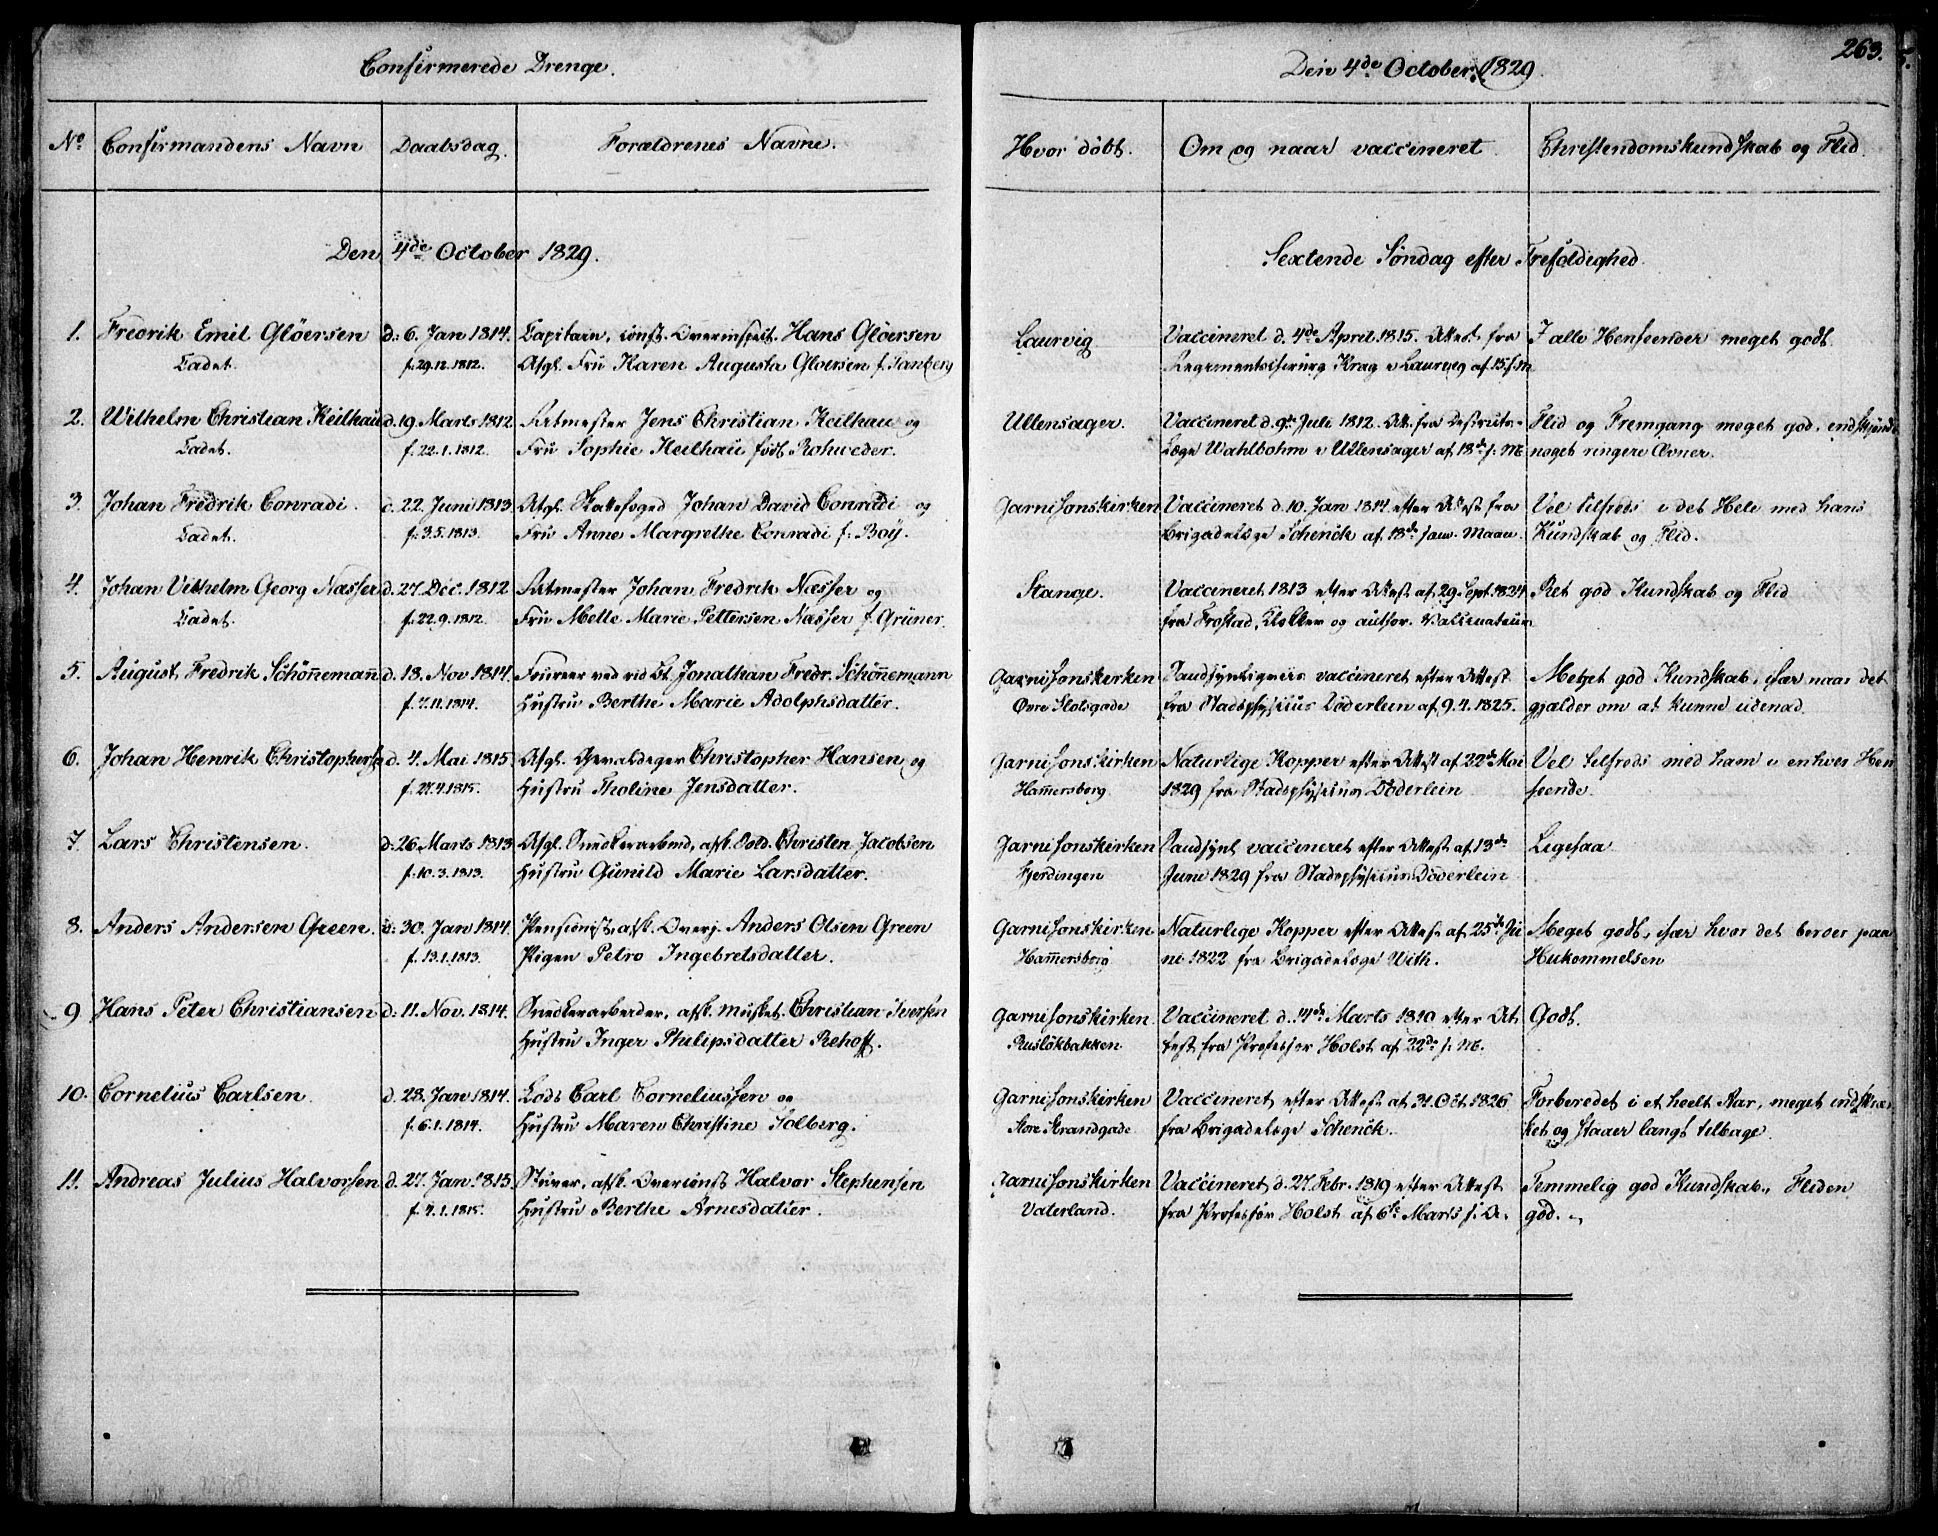 Confirmerede Drenge.
No. Confirmandens Navn Daabsdag. Forældrenes Navne.
Den 4de October 1829.
1. Fredrik Emil Glöersen d: 6. Jan 1814. Capitain, Hans Glöersen
Cadet. f. 29.12.1812. Afgl. Fru Karen Augusta Gloersen f. Sanberg
2. Wilhelm Christian Keilhau d. 19 Marts 1812 Ritmester Jens Christian Keilhau og
Cadet. f. 22.1.1812. Fru Sophie Keilhau født Rohweder.
3. Johan Fredrik Conradi. 22. Juni 1813 Afgl. Skattefoged Johan David Conradi og
Cadet. f: 3.5.1813. Fru Anne Margrethe Conradi f: Boij.
4. Johan Vilhelm Georg Næsser d. 27. Dec. 1812 Ritmester Johan Fredrik Næsser og
Cadet. f. 22.9.1812. Fru Mette Marie Pettersen Næsser f. Grüner.
5. August Fredrik Schönnemann d. 13. Nov. 1814. Foureer ved rid Bt. Jonathan Fredr. Schönnemann
f. 7.11.1814. Hustru Berthe Marie Adolphsdatter.
6. Johan Henrik d. 4. Mai 1815 Afgl. Gevaldeger Christopher Hansen og
f. 27.4.1815. Hustru Tholine Jensdatter.
7. Lars Christensen. d: 26 Marts 1813 Afgl. Snedkerarbeid, afsk. Sold. Christen Jacobsen
f. 10.3.1813. Hustru Gunild Marie Larsdatter.
8. Anders Andersen Green. 30. Jan 1814. Pensionist, afsk. Overj. Anders Olsen Green
f. 13.1.1813. Pigen Petro Ingebretsdatter.
9 Hans Peter Christiansen d: 11. Nov. 1814. Snedkerarbeider, afsk. Musket. Christian Iversen
Hustru Inger Philipsdatter Rehoff.
10. Cornelius Carlsen. d. 23. Jan 1814. Lods Carl Corneliussen og
f. 6.1.1814. Hustru Maren Christine Solberg.
11. Andreas Julius Halvorsen d. 27. Jan. 1815. Stuver, afsk. Halvor Stephensen
f. 7.1.1815. Hustru Berthe Arnesdatter.
263.
Den 4de October 1829.
Hvor döbt. Om og naar vaccineret Christendomskundskab og Flid.
Sextende Søndag efter Trefoldighed.
Laurvig Vaccineret d. 4de April 1815. Attest fra I alle Henseender meget godt.
Regimentschirurg Krag i Laurvig af 15 s.M.
Ullensager. Vaccineret d. 9de Juli 1812. Att. fra Districts- Flid og Fremgang meget god, endskjøndt
Læge Wahlbohm i Ullensager af 18de s: M. noget ringere Ævner.
Garnisonskirken Vaccineret d. 10. Jan 1814 efter Attest fra Vel tilfreds i det Hele med hans
Brigadelæge Schenck af 18de samme Maan. Kundskab og Flid.
Stange. Vaccineret 1813 efter Attest af 29. Sept. 1824 Ret god Kundskab og Flid
fra Frostad, Klokker og author. Vaccinateur
Garnisonskirken Sandsynligviis vaccineret efter Attest Meget god Kundskab, især naar det
Øvre Slotsgade fra Stadsphysicus Döderlein af 9.4.1825. gjælder om at kunne udenad.
Garnisonskirken Naturlige Kopper efter Attest af 22de Mai Vel tilfreds med ham i enhver Hen
Hammersborg 1829 fra Stadsphysicus Döderlein seende.
Garnisonskirken Sandsynl vaccineret efter Attest af 13de Ligesaa
Fjerdingen Juni 1829 fra Stadsphysicus Döderlein
Garnisonskirken Naturlige Kopper efter Attest af 25de Ju Meget godt, især hvor det beroer paa
Hammersborg ni 1822 fra Brigadelæge With. Hukommelsen
Garnisonskirken Vaccineret d. Marts 1810 efter At Godt.
Ruslökbakken test fra Professor Holst af 22de s: M.
Garnisonskirken Vaccineret efter Attest af 31. Oct 1826 Forberedet i et heelt Aar, meget indskræn
Store Strandgade fra Brigadelæge Schenck. ket og staaer langt tilbage.
Garnisonskirken Vaccineret d. 27. Febr. 1819 efter Attest Temmelig god Kundskab, Fliden
Vaterland. fra Professor Holst af 6te Marts s. A. god.